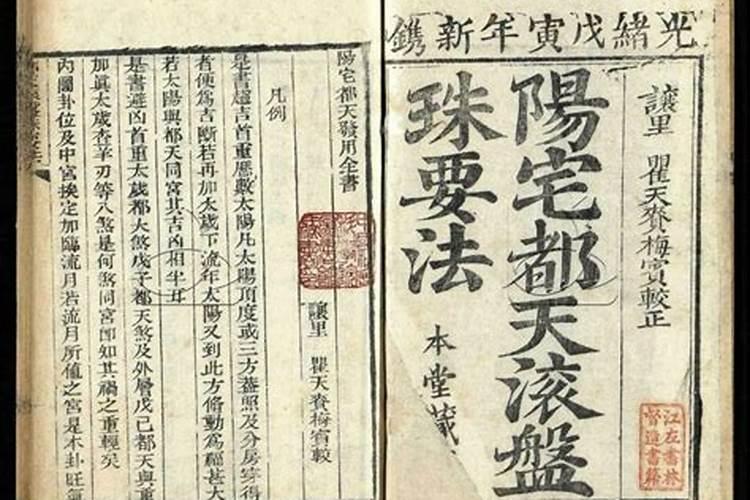 光緒戊寅年新鐫
讓里 瞿天賚梅賓較正
陽宅都天滾盤
珠要法
本堂藏
江左書林
督造書籍
陽宅都天發用全書
讓里 瞿天賚梅賓較
凡例
是書趨吉首重歷數太陽凡太陽頂度或三方蓋照及分房穿得
者便為吉斷若再加太歲下流年太陽又到此方脩動為福甚大
若太陽與都天同宮其吉凶相半耳
是書避凶首重太歲都大煞戊子都天煞及外層戊己都天與重
加眞太歲杳羊刃等八煞是何煞同宮卽知其禍之重輕矣
內圖卦位及中宮挨定加臨流月若流月所值之宮是本卦旺氣